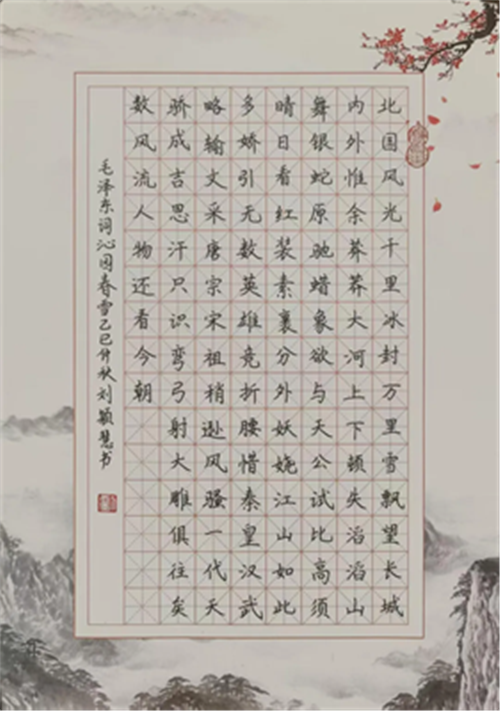 北国风光千里冰封万里雪飘望长城
内外惟余莽莽大河上下顿失滔滔山
舞银蛇原驰蜡象欲与天公试比高须
晴日看红装素裹分外妖娆江山如此
多娇引无数英雄竞折腰惜秦皇汉武
略输文采唐宗宋祖稍逊风骚一代天
骄成吉思汗只识弯弓射大雕俱往矣
数风流人物还看今朝
毛泽东词沁园春雪乙巳仲秋刘颖慧书